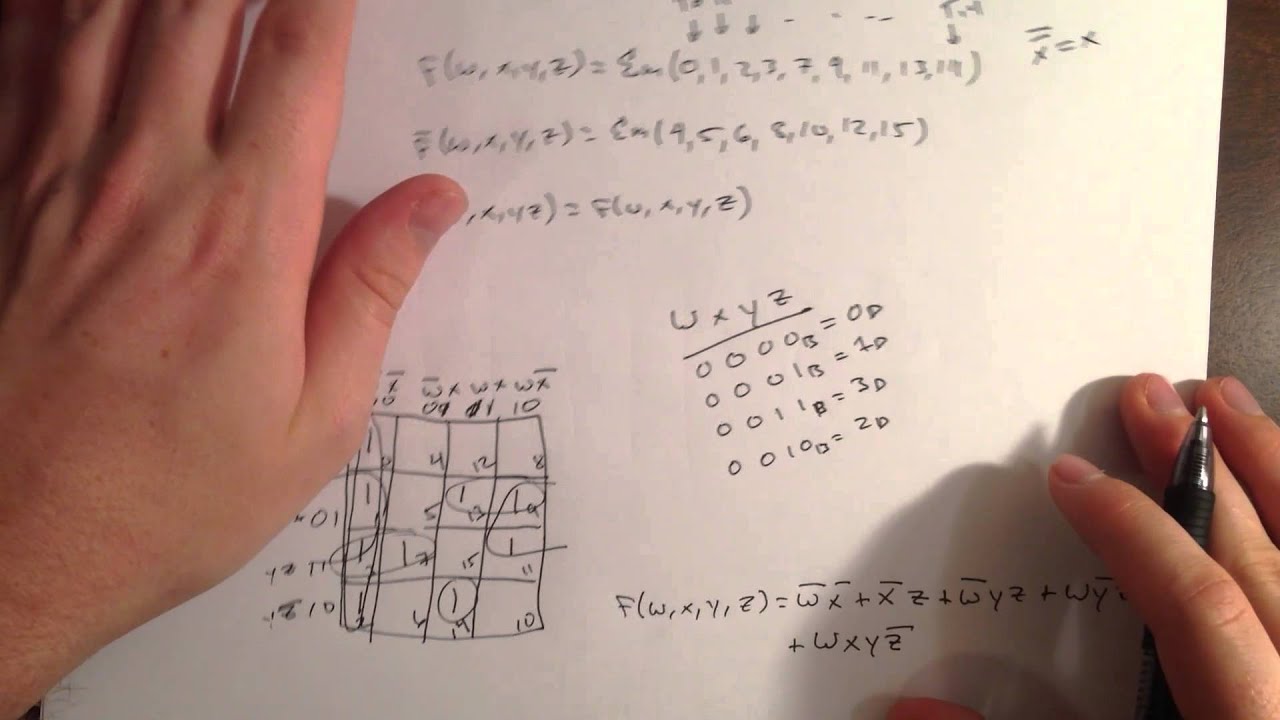 x̿ = x
F(w,x,y,z) = Σm(0,1,2,3,7,9,11,13,14)
F̅(w,x,y,z) = Σm(4,5,6,8,10,12,15)
,x,y,z) = F(w,x,y,z)
w x y z
0 0 0 0B = 0D
0 0 0 1B = 1D
0 0 1 1B = 3D
0 0 1 0B = 2D
x̅ w̅x wx wx̅
01 11 10
1 4 12 8
1 5 1 13 1 9
11 1 1 7 15 1 11
10 1 6 1 14 10
F(w,x,y,z) = w̅x̅ + x̅z + w̅yz + wy̅
+ wxyz̅